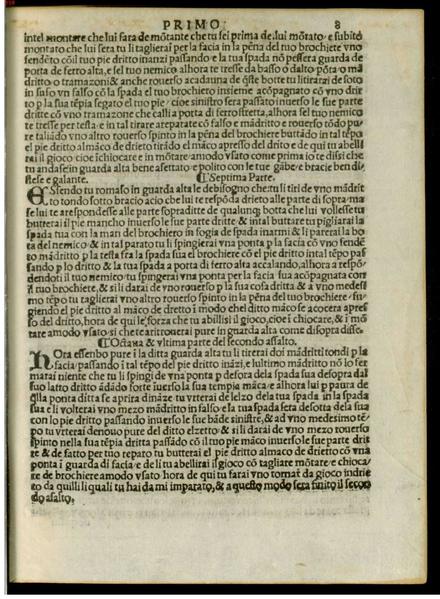 PRIMO 8
intel montare che lui fara de mōtante che tu sei prima de lui mōtato, e subito
montato che lui sera tu li taglierai per la facia in la pēna del tuo brochiere vno
sendēto cō il tuo pie dritto inanzi passando, e la tua spada nō pessera guarda de
porta de ferro alta, e sel tuo nemico alhora te tresse da basso o dalto pōta, o mā
dritto, o tramazoni & anche rouerso acadauna de q̄ste botte tu li tirarai de foto
in suso vn falso cō la spada el tuo brochiero insieme acōpagnato cō vno drit
to p la sua tēpia segato el tuo pie, cioe sinistro sera passato inuerso le sue parte
dritte cō vno tramazone che calli a porta di ferro stretta, alhora sel tuo nemico
te tresse per testa, e in tal tirare areparate cō falso e mādritto e rouerso tōdo pu
re taliādo vno altro rouerso spinto in la pēna del brochiere buttādo in tal tēpo
el pie dritto al māco de drieto tirādo el māco apresso del drito, e de qui tu abelli
rai il gioco cioe ichiocare e in mōtare, amodo vsato come prima io te dissi che
tu andase in guarda alta bene asettato, e polito con le tue gābe, e bracie ben di
stese e galante.
¶ Septima Parte.
ESsendo tu romaso in guarda alta le debisogno che tu li tiri de vno mādrit
to tondo sotto bracio acio che lui te respōda drieto alle parte di sopra, ma
se lui te arespondesse alle parte sopraditte de qualunq̄ botta che lui vollesse tu
butterai il pie mancho inuerso le sue parte dritte & intal buttare tu pigliarai la
spada tua con la man del brochiero in fogia de spada inarmi & li pararai la bo
ta del nemico, & in tal parato tu li spingierai vna ponta p la facia cō vno sendē
te mādritto p la testa fra la spada sua el brochiero cō el pie dritto intal tēpo pas
sando p lo dritto & la tua spada a porta di ferro alta accalando, alhora a respō/
dendoti il tuo nemico tu spingerai vna ponta per la facia sua acōpagnata con
il tuo brochiere, & si li darai de vno rouerso p la sua cosa dritta & a vno medesi
mo tēpo tu taglierai vno altro rouerso spinto in la pēna del tuo brochiere, fu
giendo el pie dritto al māco de dretto ī modo che ditto māco se acocera apres
so del dritto, hora de qui le, forza che tu abillisi il gioco, cioe ī chiocare, & ī mō
tare amodo vsato, & si che te ariterouerai pure in guarda alta come disopra disse.
¶ Octaua & vltima parte del secondo assalto.
HOra essenbo pure ī la ditta guarda alta tu li tirerai doi mādritti tondi p la
facia, passando ī tal tēpo del pie dritto ināzi, e lultimo mādritto nō lo fer
marai niente che tu li spingi de vna ponta p desora dela spada sua desopra dal
suo latto dritto ādādo forte iuerso la sua tempia māca, e alhora lui p paura de
q̄lla ponta ditta se aprira dināze, tu vrterai de lelzo dela tua spada in la spada
sua e li volterai vno mezo mādritto in falso, e la tua spada sera desotta dela sua
con lo pie dritto passando inuerso le sue bāde sinistre, & ad vno medesimo tē
po tu vrterai denouo pure del ditto elzetto, & si li darai de vno mezo rouerso
spinto nella sua tēpia dritta passādo cō il tuo pie māco inuerso le sue parte drit
te & de fatto per tuo reparo tu butterai el pie dritto almaco de drieto cō vna
ponta ī guarda di facia, e de li tu abellirai il gioco cō tagliare mōtare, e chioca/
re de brochiere amodo vsato hora de qui tu farai vno tornar da gioco indrie
to da quilli li quali tu hai da mi imparato, & a questo modo sera finito il seco
do asalto.